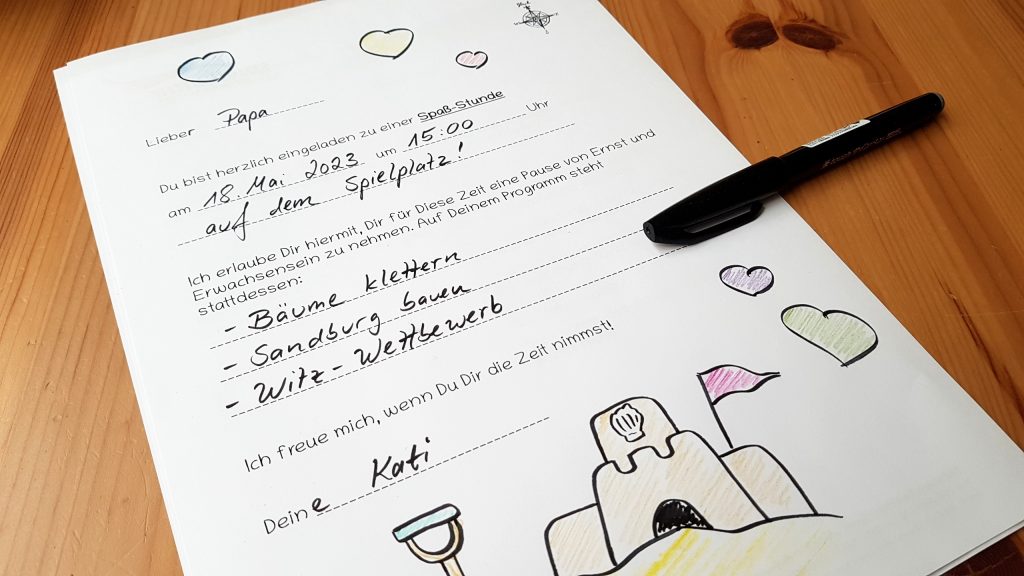 Lieber Papa
Du bist herzlich eingeladen zu einer Spaß-Stunde
am 18. Mai 2023 um 15:00 Uhr
auf dem Spielplatz!
Ich erlaube Dir hiermit, Dir für Diese Zeit eine Pause von Ernst und
Erwachsensein zu nehmen. Auf Deinem Programm steht
stattdessen:
- Bäume klettern
- Sandburg bauen
- Witz-Wettbewerb
Ich freue mich, wenn Du Dir die Zeit nimmst!
Deine Kati